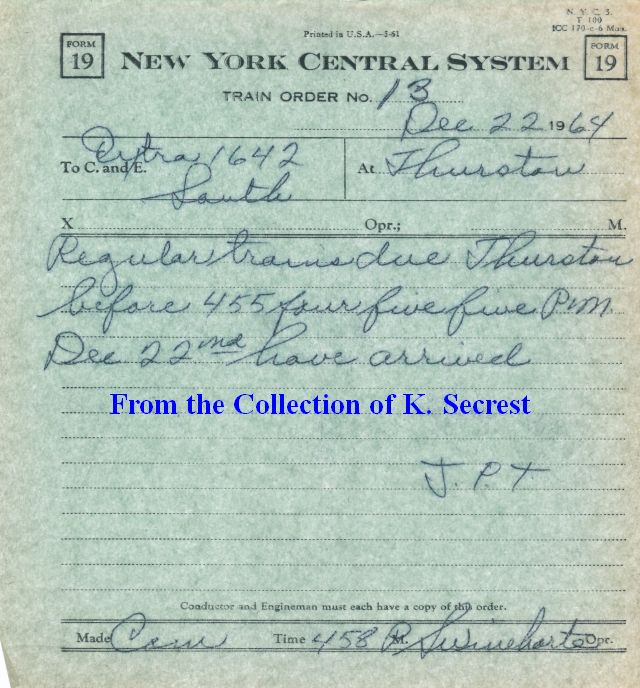 N. Y. C. S.
T 100
ICC 170-c-6 Mos.
Printed in U.S.A.—5-61
FORM
19
NEW YORK CENTRAL SYSTEM
FORM
19
TRAIN ORDER No. 13
Dec 22 1964
To C. and E. Extra 1642
South
At Thurston
X Opr.; M.
Regular trains due Thurston
before 455 four five five P.M.
Dec 22nd have arrived
From the Collection of K. Secrest
J. P. T
Conductor and Engineman must each have a copy of this order.
Made Com Time 458 P M. Swinehart Opr.